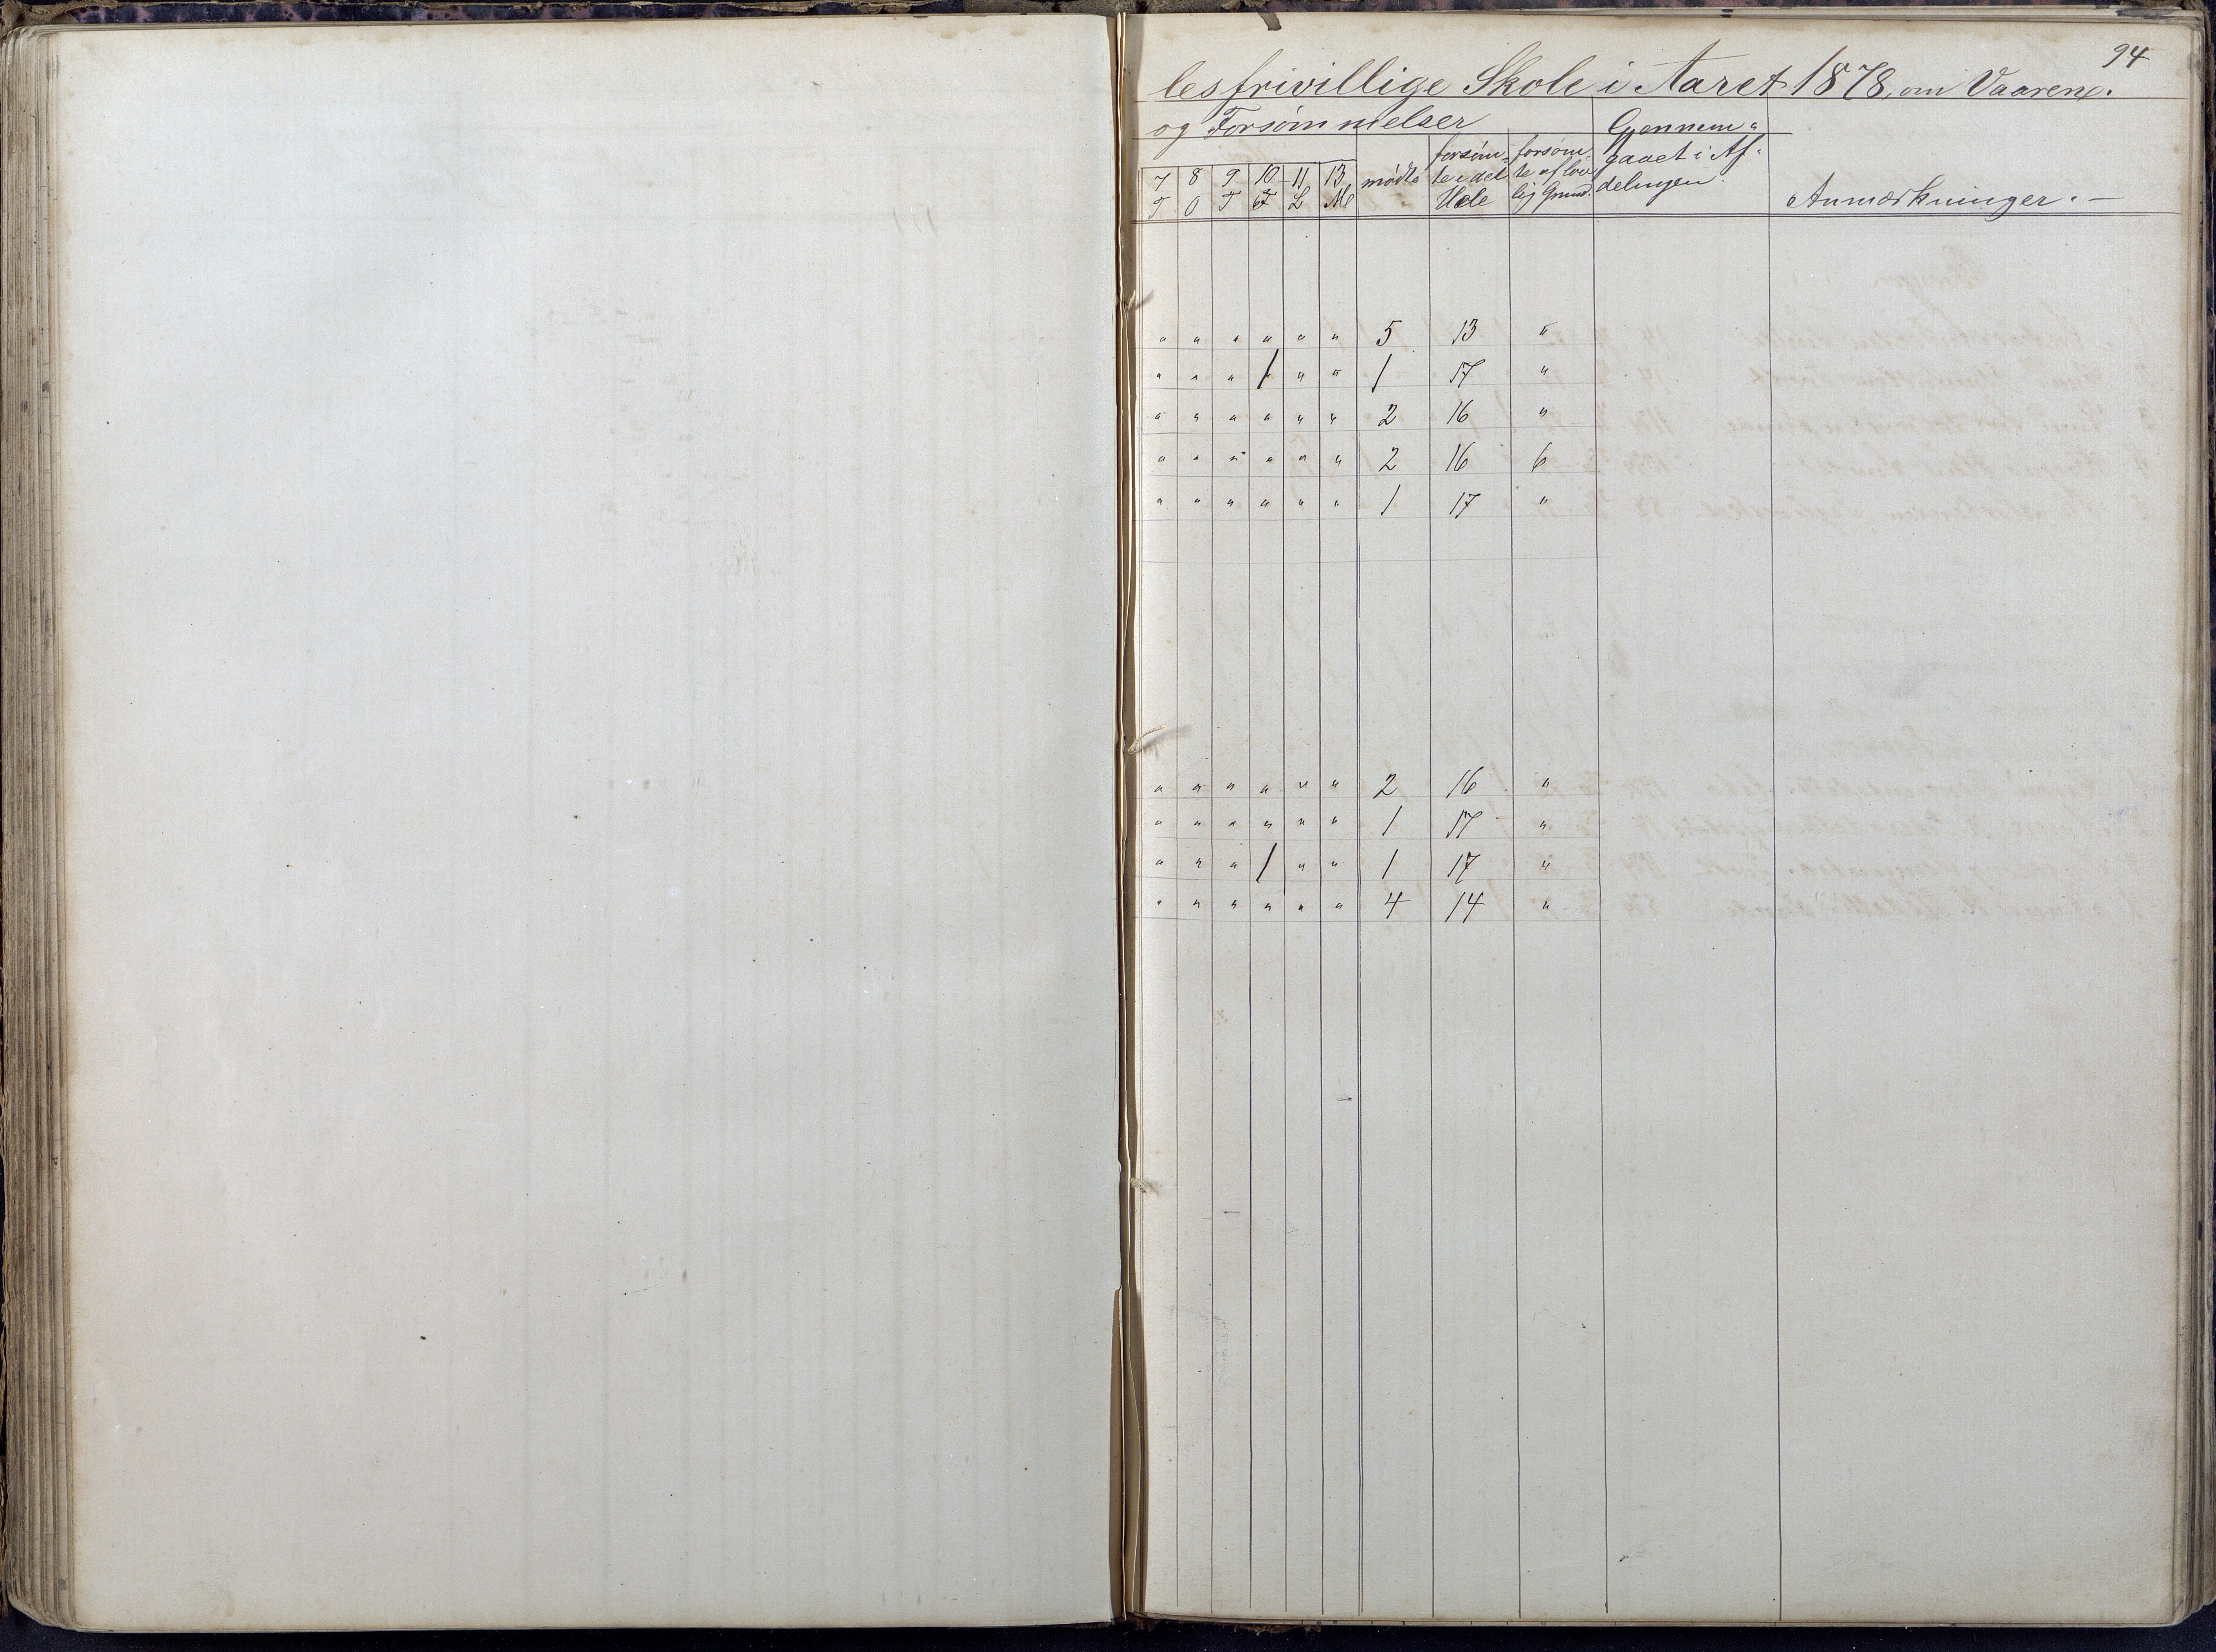 94
les frivillige Skole i Aaret 1878, om Vaaren.
og Forsømmelser
7 T 8 O 9 T 10 F 11 L 13 M mødte forsøm- te i det Hele forsøm- te af lov- lig Grund. Gjennem- gaaet i Af- delingen. Anmærkninger. —
" " " " " " 5 13 "
" " " / " " 1 17 "
" " " " " " 2 16 "
" " " " " " 2 16 6
" " " " " " 1 17 "
" " " " " " 2 16 "
" " " " " " 1 17 "
" " " / " " 1 17 "
" " " " " " 4 14 "